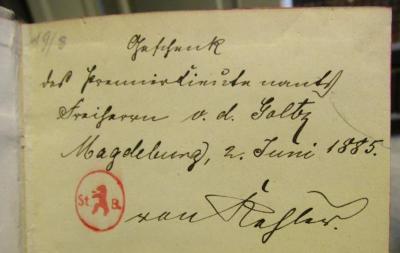 19/8
Geschenk
des Premierlieutenants
Freiherrn v. d. Goltz
Magdeburg, 2. Juni 1885.
St B
von Kehler.